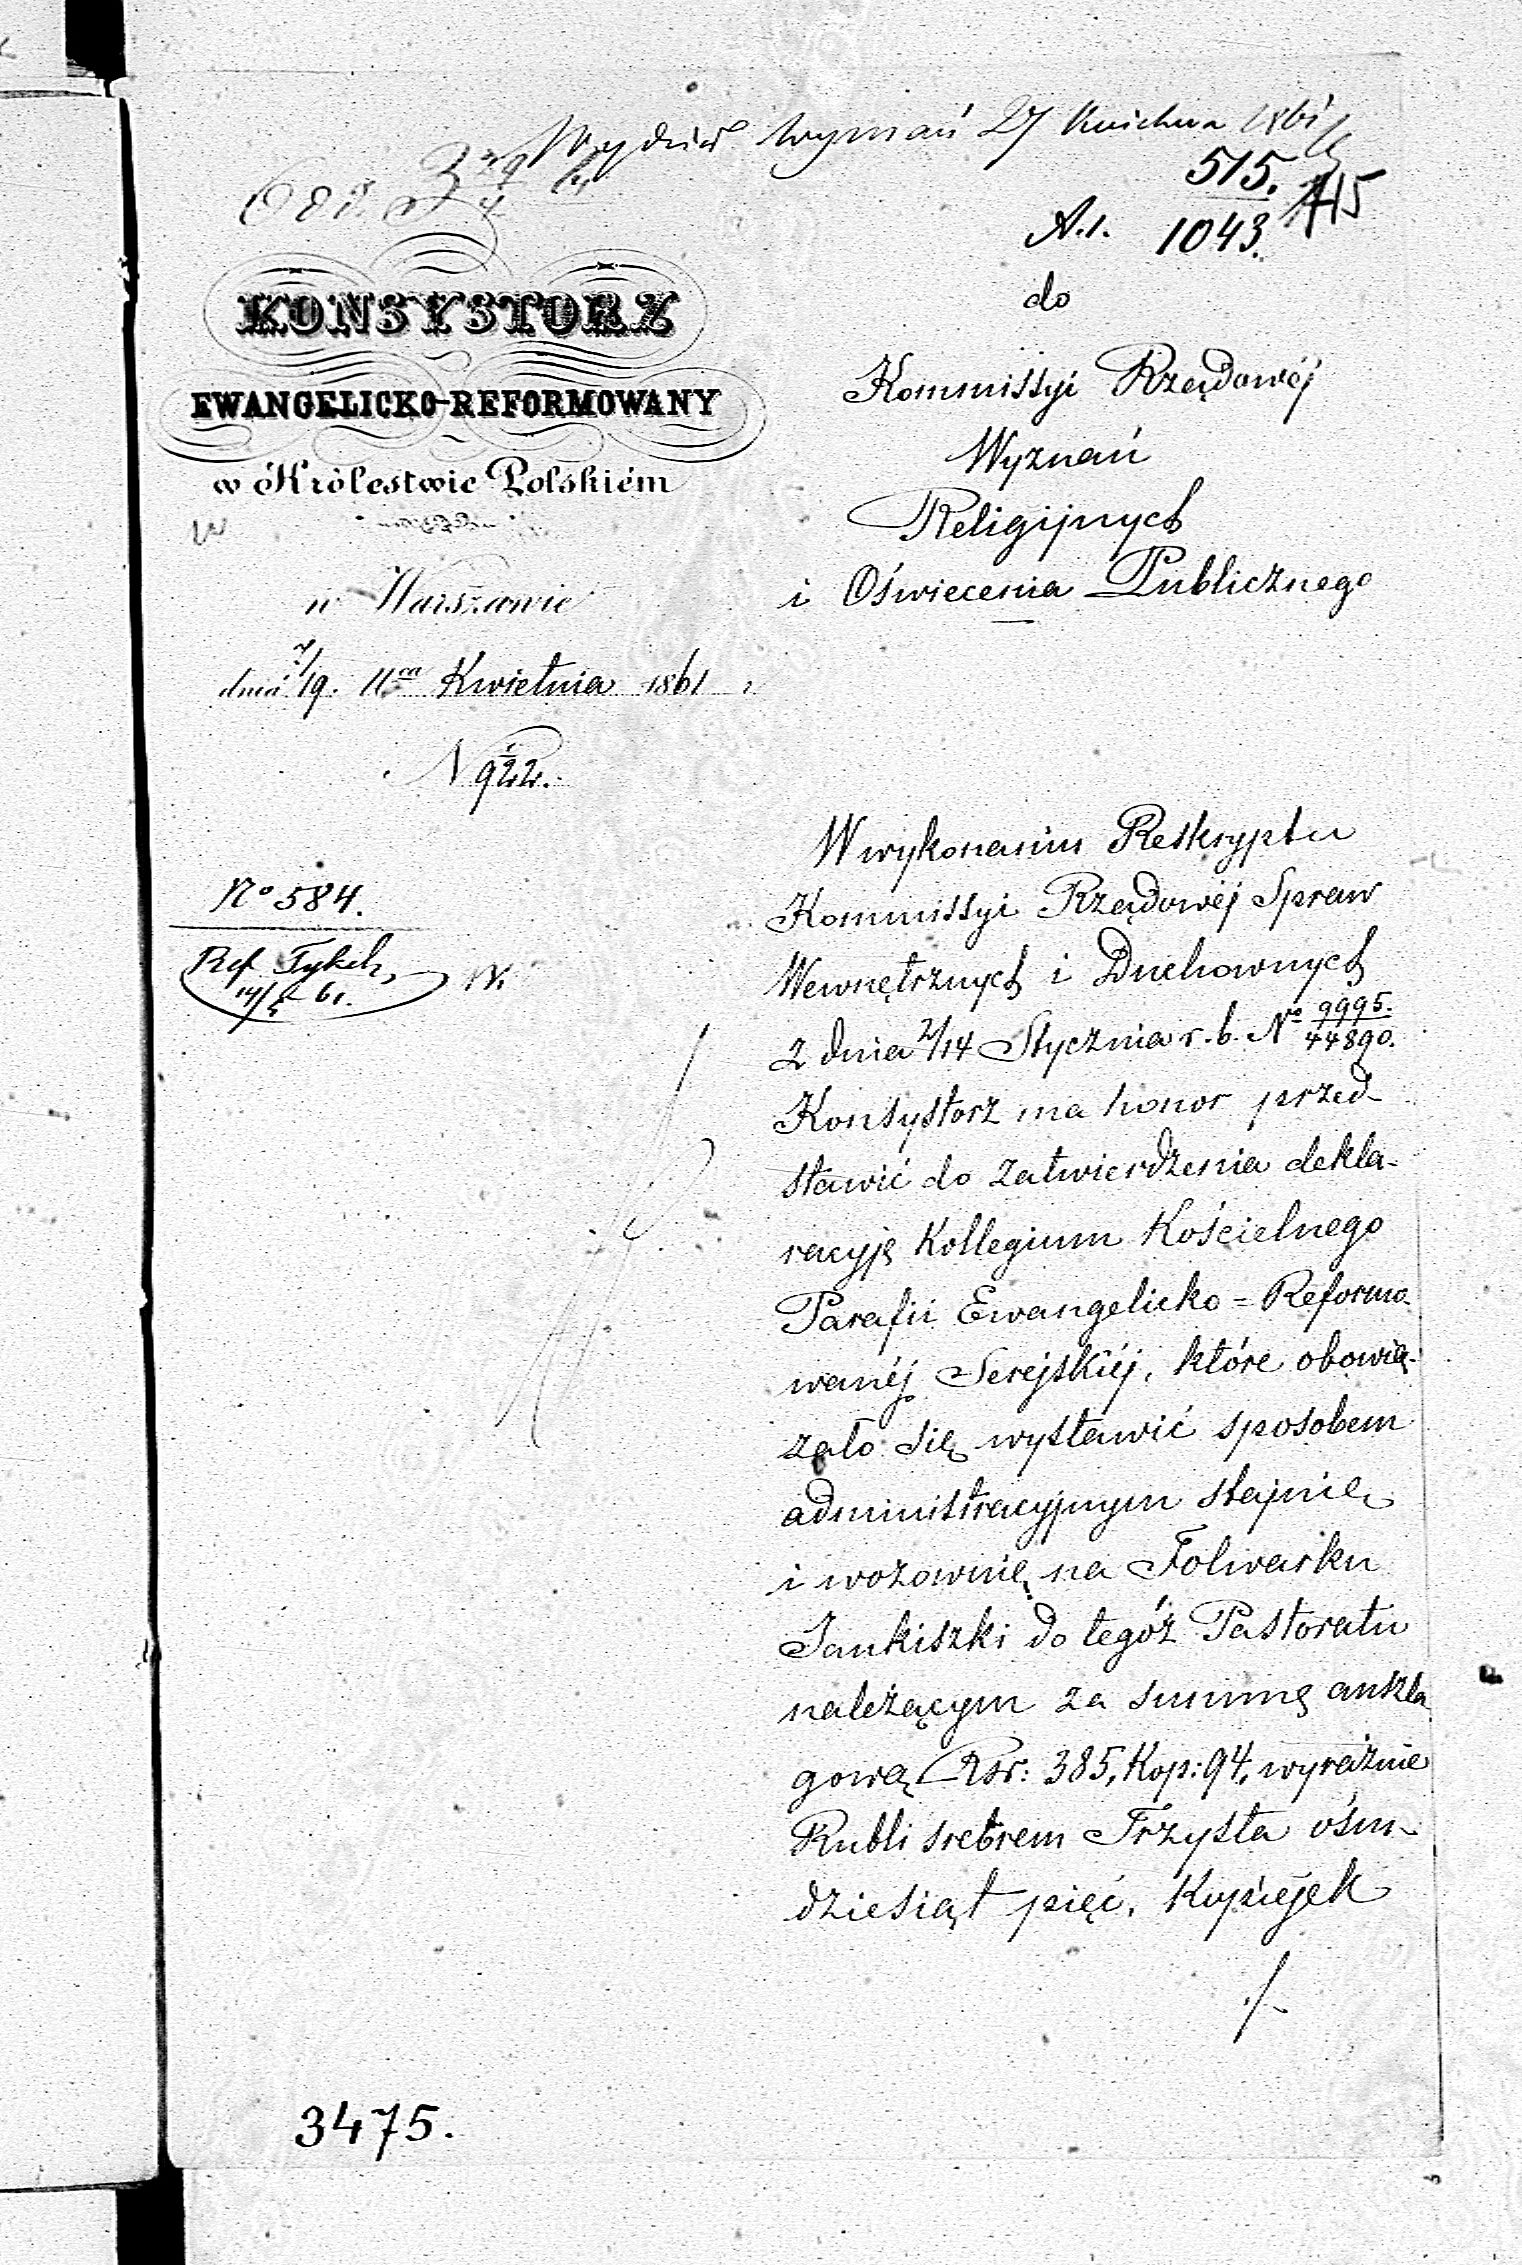 Wydział Wyznań 27 Kwietnia 1861
515.
A.1. 1043.
415
KONSYSTORZ
EWANGELICKO-REFORMOWANY
w Królestwie Polskiém
w Warszawie
dnia 7/19. Kwietnia 1861 r.
N 922.
do
Kommissyi Rządowéj
Wyznań
Religijnych
i Oświecenia Publicznego
No 584.
Ref
14/5 61.
W wykonaniu Reskryptu
Kommissyi Rządowéj Spraw
Wewnętrznych i Duchownych
z dnia 2/14 Stycznia r. b. No 9995./44890.
Konsystorz ma honor przed-
stawić do zatwierdzenia dekla-
racyję Kollegium Kościelnego
Parafii Ewangelicko=Reformo-
wanéj Serejskiéj, które obowią-
zało się wystawić sposobem
administracyjnym stajnię
i wozownię na Folwarku
Jankiszki do tegóż Pastoratu
należącym za summę anszla-
gową Rsr: 385, Kop: 94, wyraźnie
Rubli srebrem Trzysta ośm-
dziesiąt pięć, Kopiejek
./.
3475.